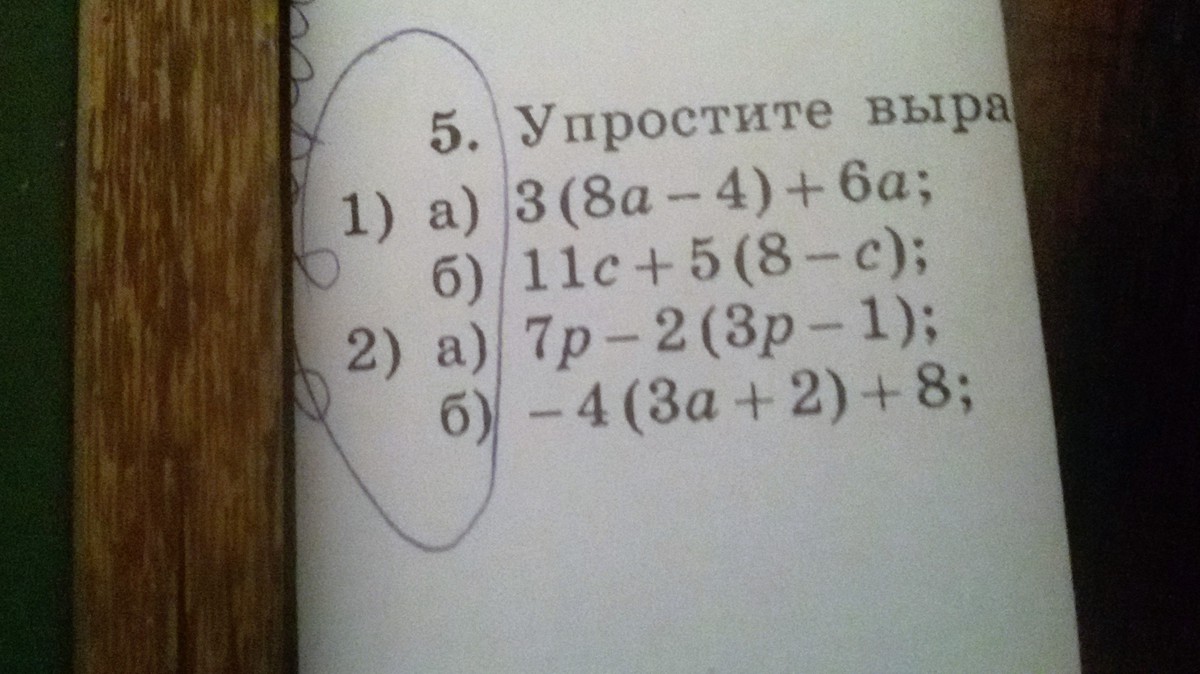 5. Упростите выра
1) а) 3(8a – 4) + 6a;
б) 11c + 5(8 – c);
2) а) 7p – 2(3p – 1);
б) – 4(3a + 2) + 8;